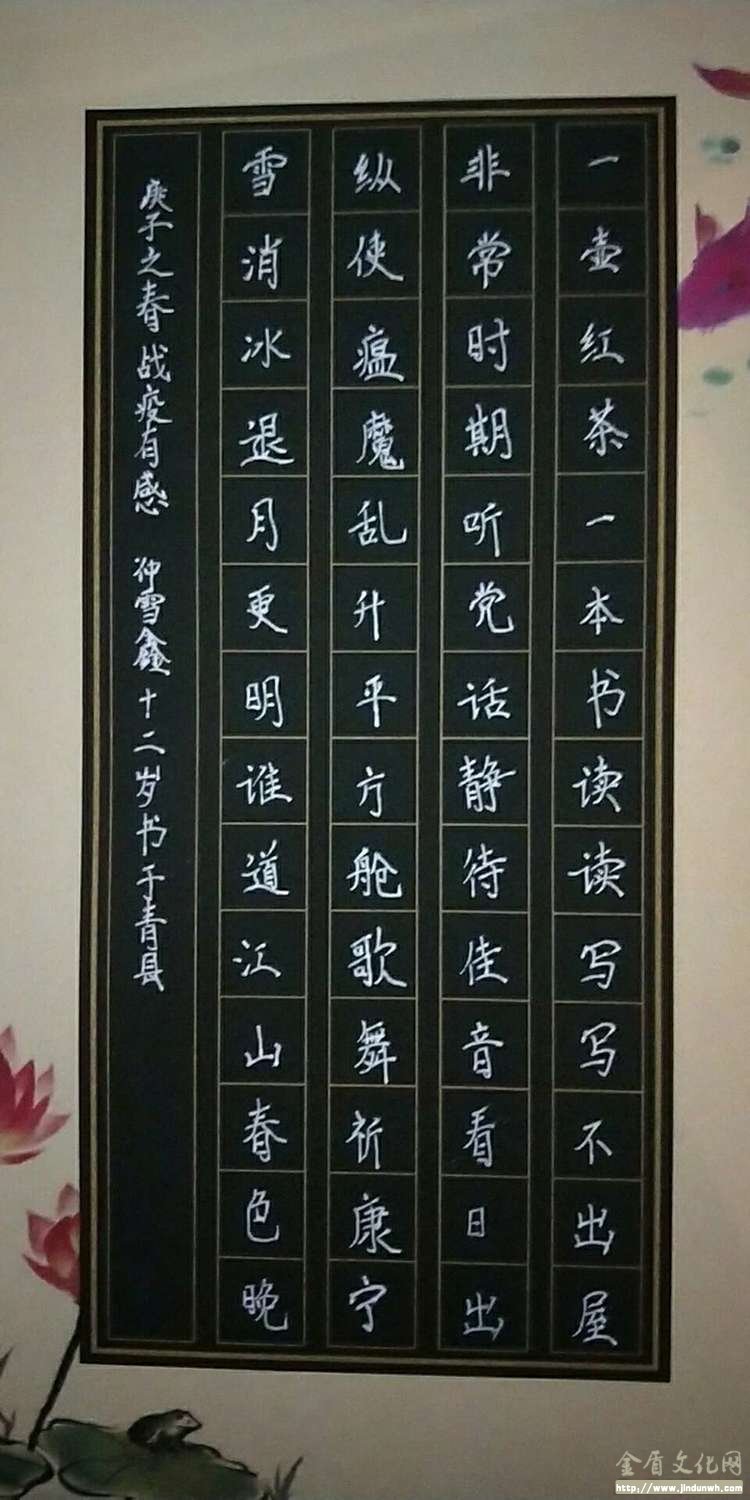 一壶红茶一本书读读写写不出屋
非常时期听党话静待佳音看日出
纵使瘟魔乱升平方舱歌舞祈康宁
雪消冰退月更明谁道江山春色晚
庚子之春战疫有感 仲雪鑫十二岁书于青县
金盾文化网
http://www.jindunwh.com